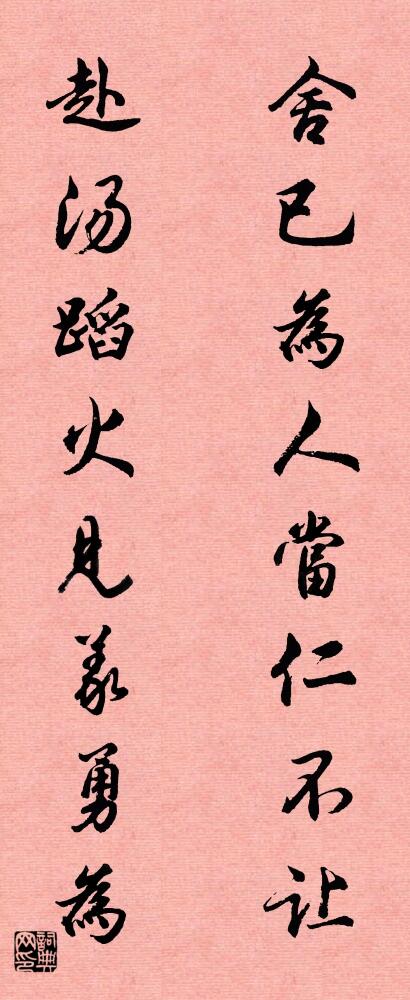 舍已為人當仁不让
赴汤蹈火見義勇為
詞典网印